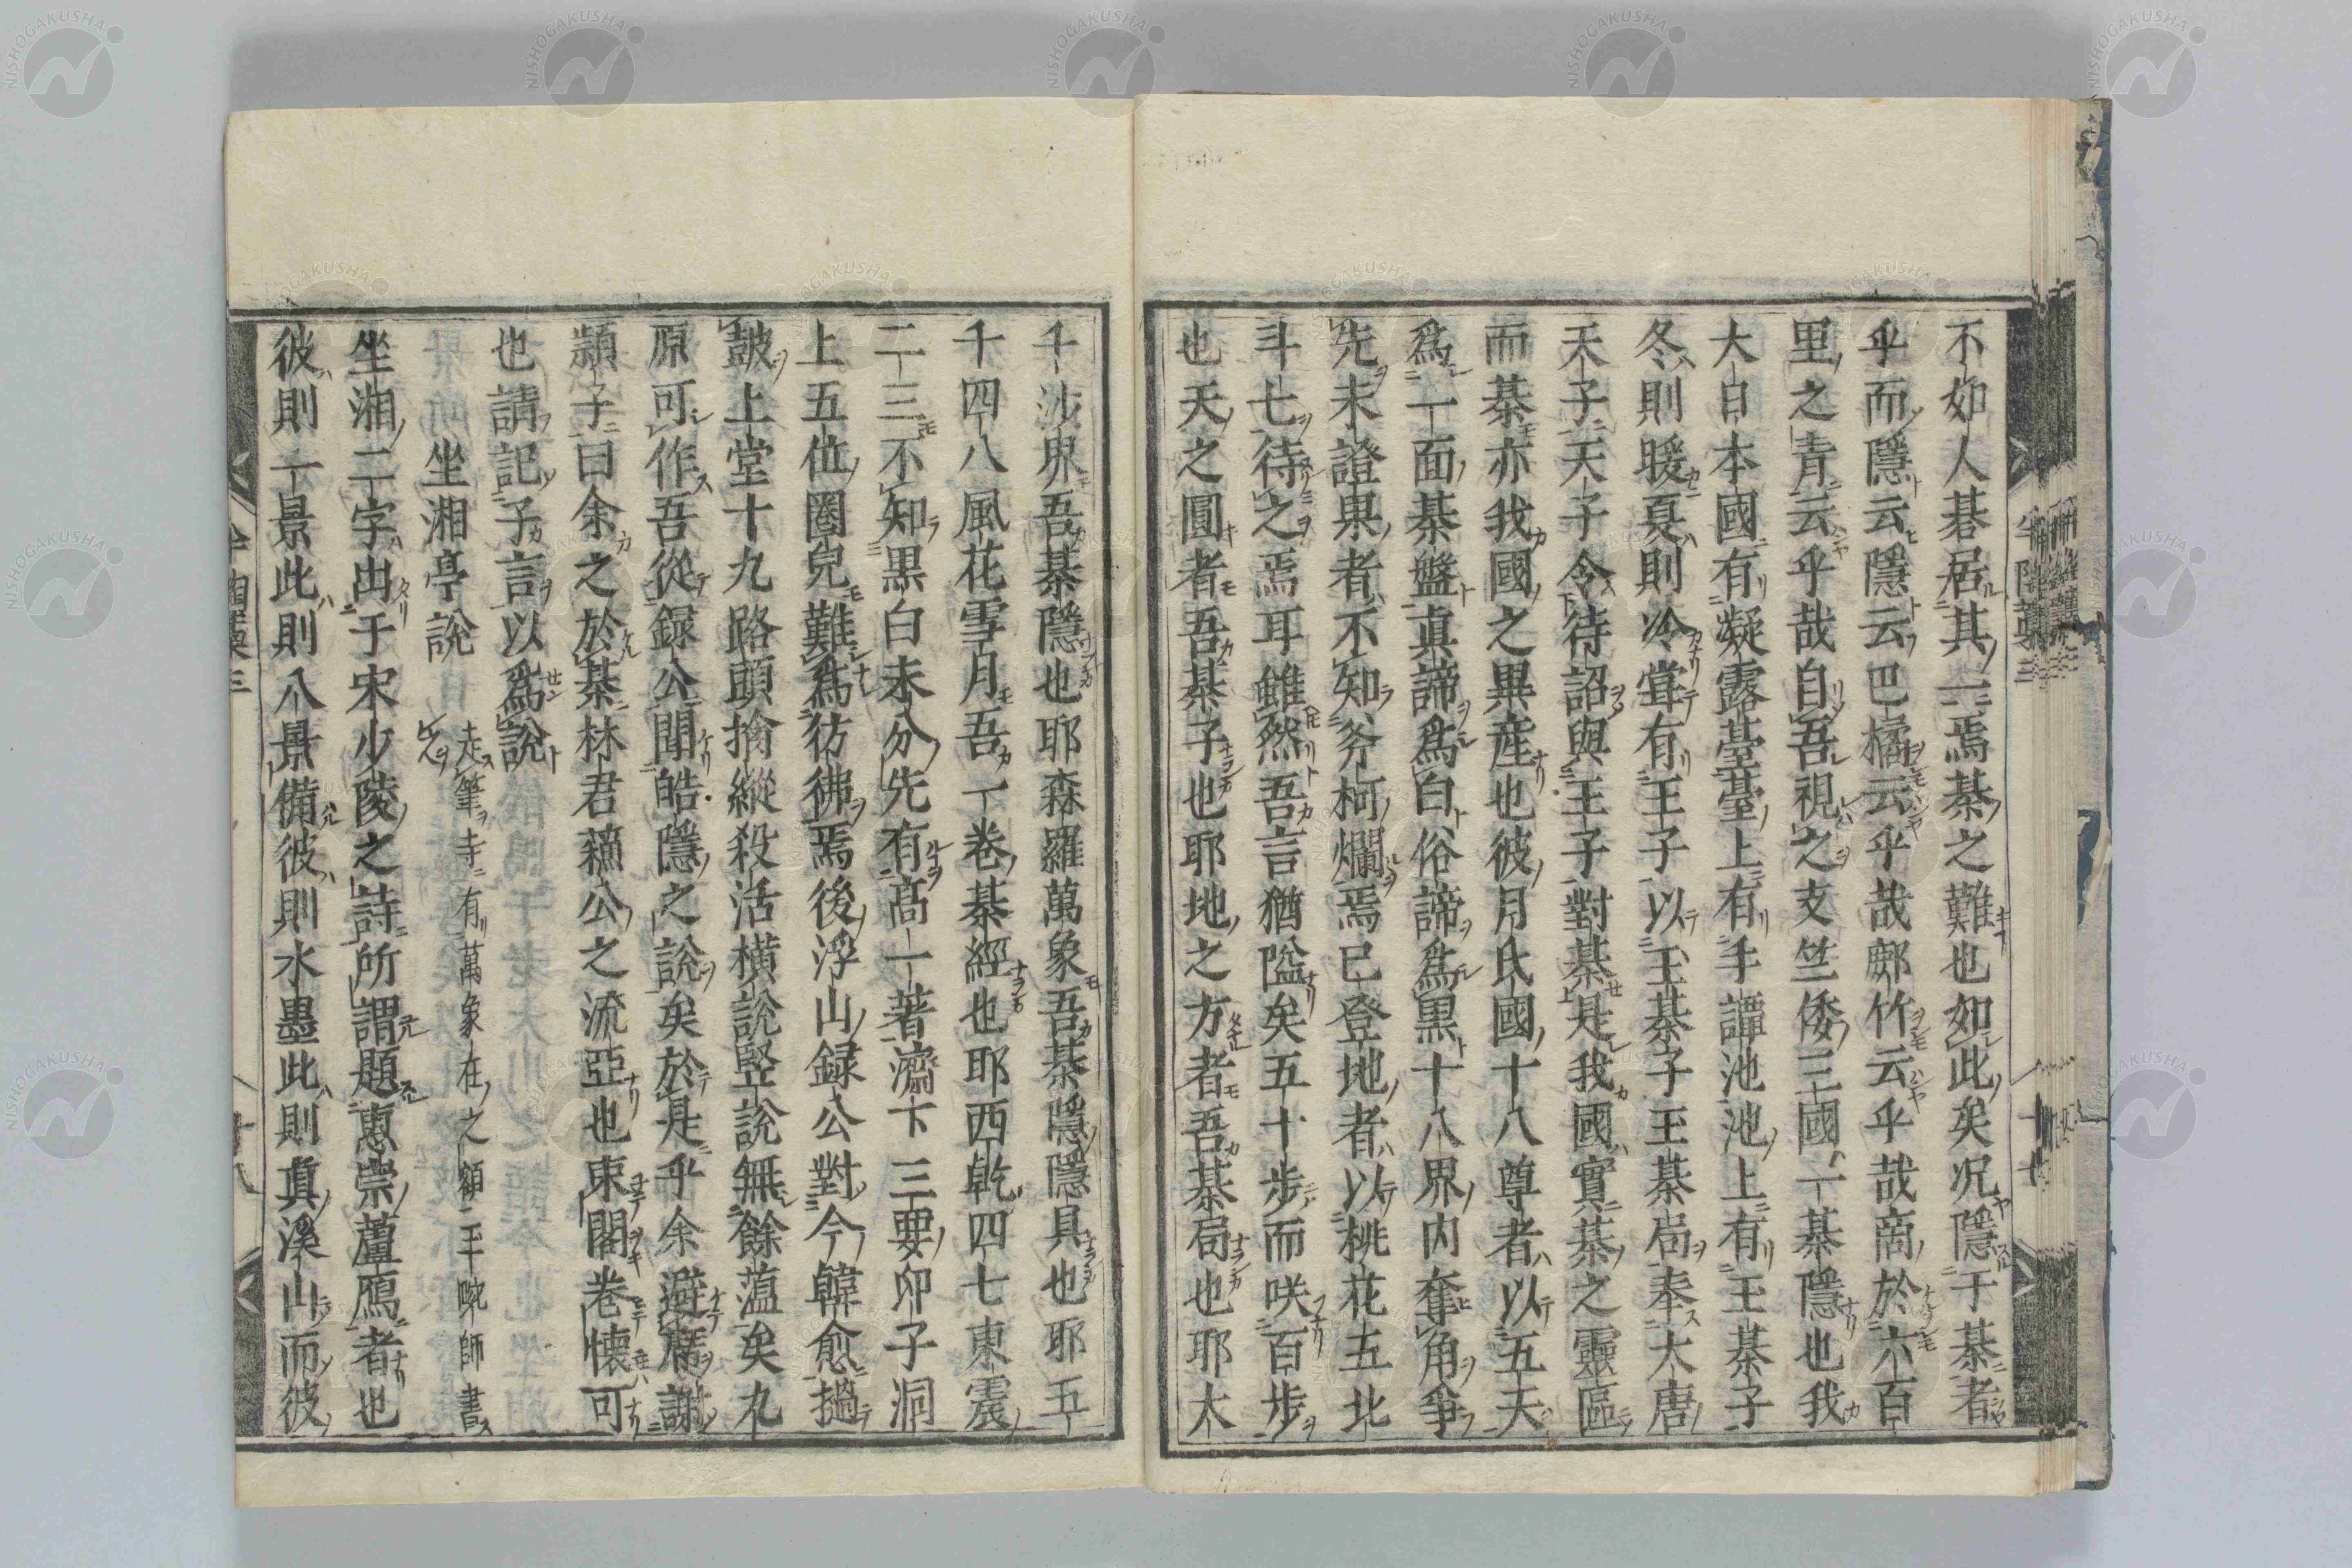 不如人碁居其一焉棊之難也如此矣况隱于棊者
乎而隱云隱云巴橘云乎哉鄜竹云乎哉商於六百
里之青云乎哉自吾視之支竺倭三國一棊隱也我
大日本國有凝露臺臺上有手譚池池上有王棊子
冬則暖夏則冷甞有王子以王棊子王棊局奉大唐
天子天子令待詔與王子對棊是我國實棊之靈區
而棊亦我國之異産也彼月氏國十八尊者以五天
爲一面棊盤眞諦爲白俗諦爲黒十八界内奪角爭
先未證果者不知斧柯爛焉已登地者以桃花五北
斗七待之焉耳雖然吾言猶隘矣五十步而咲百步
也天之圓者吾棊子也耶地之方者吾棊局也耶大
千沙界吾棊隱也耶森羅萬象吾棊隱隱具也耶五
千四八風花雪月吾一卷棊經也耶西乾四七東震
二三不知黒白未分先有髙一著濟下三要卯子洞
上五位圈兒難爲彷彿焉後浮山録公對今韓愈撾
皷上堂十九路頭擒縱殺活横說竪說無餘薀矣丸
原可作吾從録公聞皓隱之說矣於是乎余避席謝
纇子曰余之於棊林君藕公之流亞也束閣卷懷可
也請記子言以爲說
坐湘亭說 走筆寺有萬象在之額二王呪師書
坐湘二字出于宋少陵之詩所謂題惠崇蘆鴈者也
彼則一景此則八景備彼則水墨此則眞溪山而彼